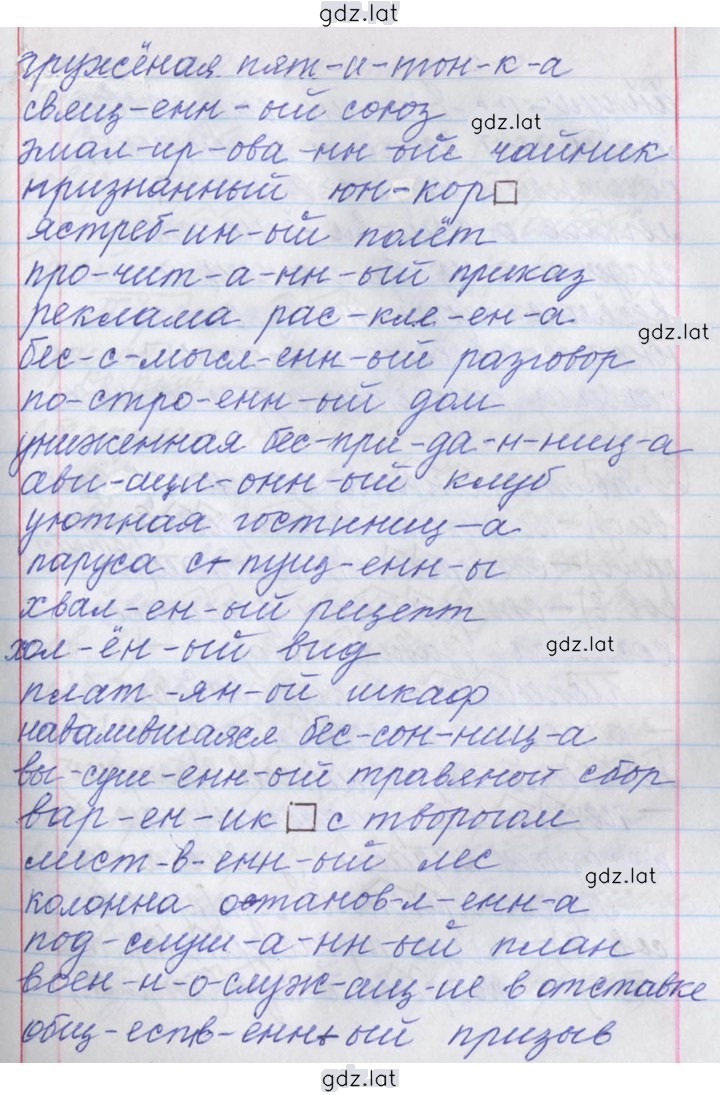 gdz.lat
гружёная пят-и-тон-к-а
свящ-енн-ый союз
gdz.lat
эмал-ир-ова-нн-ый чайник
признанный юн-кор□
ястреб-ин-ый полёт
про-чит-а-нн-ый приказ
реклама рас-кле-ен-а
gdz.lat
бес-с-мысл-енн-ый разговор
по-стро-енн-ый дом
униженная бес-при-да-н-ниц-а
ави-аци-онн-ый клуб
уютная гостиниц-а
паруса с+пущ-енн-ы
хвал-ен-ый рецепт
хол-ён-ый вид
gdz.lat
плат-ян-ой шкаф
навалившаяся бес-сон-ниц-а
вы-суш-енн-ый травяной сбор
вар-ен-ик□ с творогом
лист-в-енн-ый лес
gdz.lat
колонна останов-л-енн-а
под-слуш-а-нн-ый план
воен-н-о-служ-ащ-ие в отставке
общ-еств-енн+ый призыв
gdz.lat